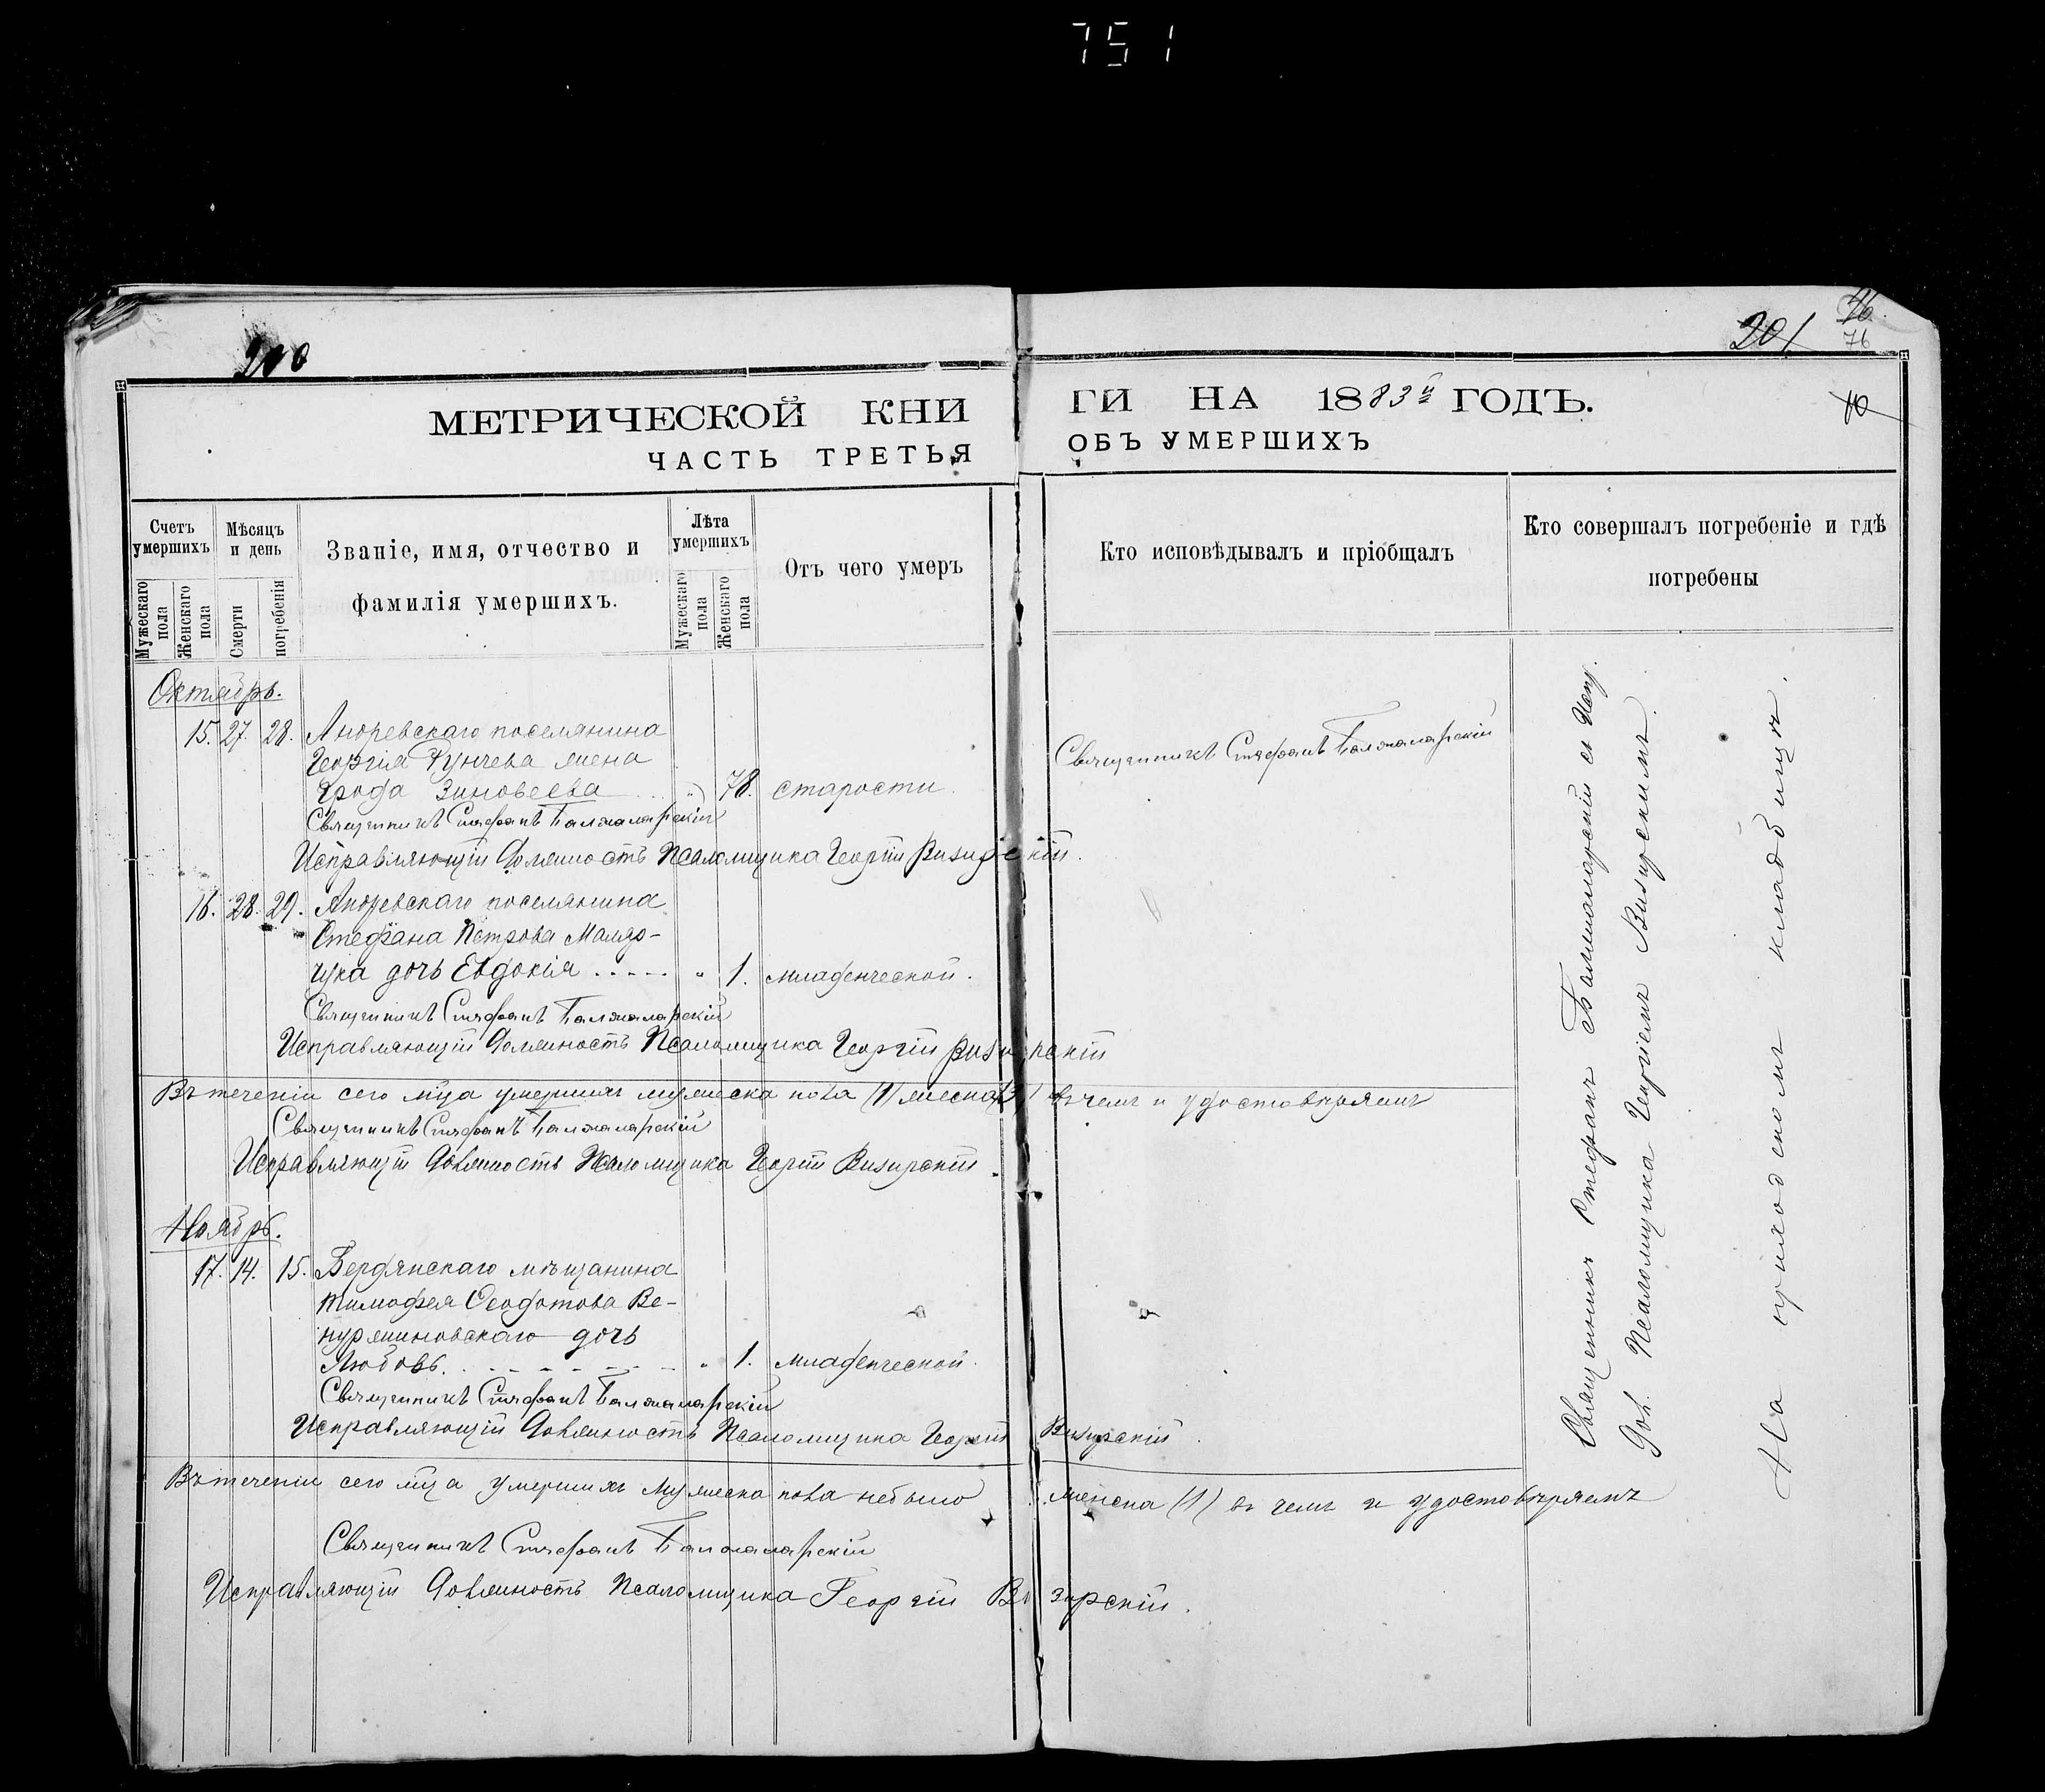 751
200
201
76
76
10
МЕТРИЧЕСКОЙ КНИ
ГИ НА 1883й ГОДЪ.
ЧАСТЬ ТРЕТЬЯ
ОБЪ УМЕРШИХЪ
Счетъ умершихъ
Мѣсяцъ и день
Званіе, имя, отчество и фамилія умершихъ.
Лѣта умершихъ
Отъ чего умеръ
Кто исповѣдывалъ и пріобщалъ
Кто совершалъ погребеніе и гдѣ погребены
Мужескаго пола
Женскаго пола
Смерти
погребенія
Мужескаго пола
Женскаго пола
Октябрь.
15. 27. 28. Андревскаго поселянина
Георгія Фунчева жена
Зиновеева ... " 78. старости.
Священникъ Стефанъ Балжаларскій
Священникъ Стефанъ Балжаларскій
Исправляющій Должность Псаломщика Георгій Визирскій.
16. 28. 29. Андревскаго поселянина
Стефана Петрова Маляр-
чука дочь Евдокія ..... " 1. младенческой.
Священникъ Стефанъ Балжаларскій
Исправляющій Должность Псаломщика Георгій Визирскій
Въ теченіи сего мца умершихъ мужеска пола (1) женска въ чемъ и удостовѣряемъ
Священникъ Стефанъ Балжаларскій
Исправляющій Должность Псаломщика Георгій Визирскій.
Ноябрь.
17. 14. 15. Бердянскаго мѣщанина
Тимофея Ѳеодотова Ве-
дочь
Любовь. ..... " 1. младенческой.
Священникъ Стефанъ Балжаларскій
Исправляющій Должность Псаломщика Георгій Визирскій.
Въ теченіи сего мца умершихъ мужеска пола небыло женска (1) въ чемъ и удостовѣряемъ
Священникъ Стефанъ Балжаларскій
Исправляющій Должность Псаломщика Георгій Визирскій.
Священникъ Стефанъ Балжаларскій съ Испр.
Дол. Псаломщика Георгіемъ Визирскимъ.
На приходскомъ кладбищѣ.